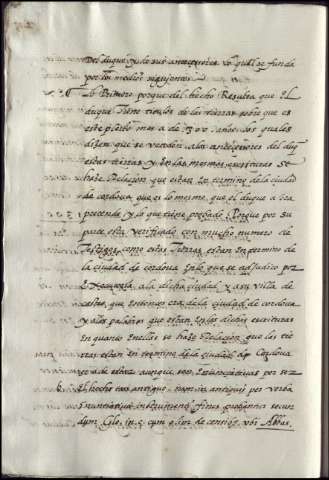 Del duque y de sus antecesores lo qual se funda
por los medios siguientes
Lo Primero porque del hecho Resulta que El
duque tiene titulos de las tierras sobre que es
este pleito mas a de 300 años los quales
dizen que se vendian a los antecesores del duq
estas tierras y En las mesmas escrituras se
haze Relacion que estan En termino de la ciudad
de cordoua que es lo mesmo que el duque a
pretende y lo que tiene probado Porque por su
parte esta verificado con mucho numero de
Testigos como estas Tierras estan en termino de
la ciudad de cordoua En lo que se adjudico por
a la dicha ciudad y su villa de
castro que entonces era de la ciudad de cordoua
y a las palabras que estan En las dichas escrituras
En quanto En ellas se haze Relacion que las tie
rras estan En termino de la ciudad de Cordoua
se a de estar aunque son Enunciatiuas por ser
El hecho tan antiguo nam in antiquis per verba
Enunciatiua probatio secun
dum in c. cum de censib. vbi Abbas.